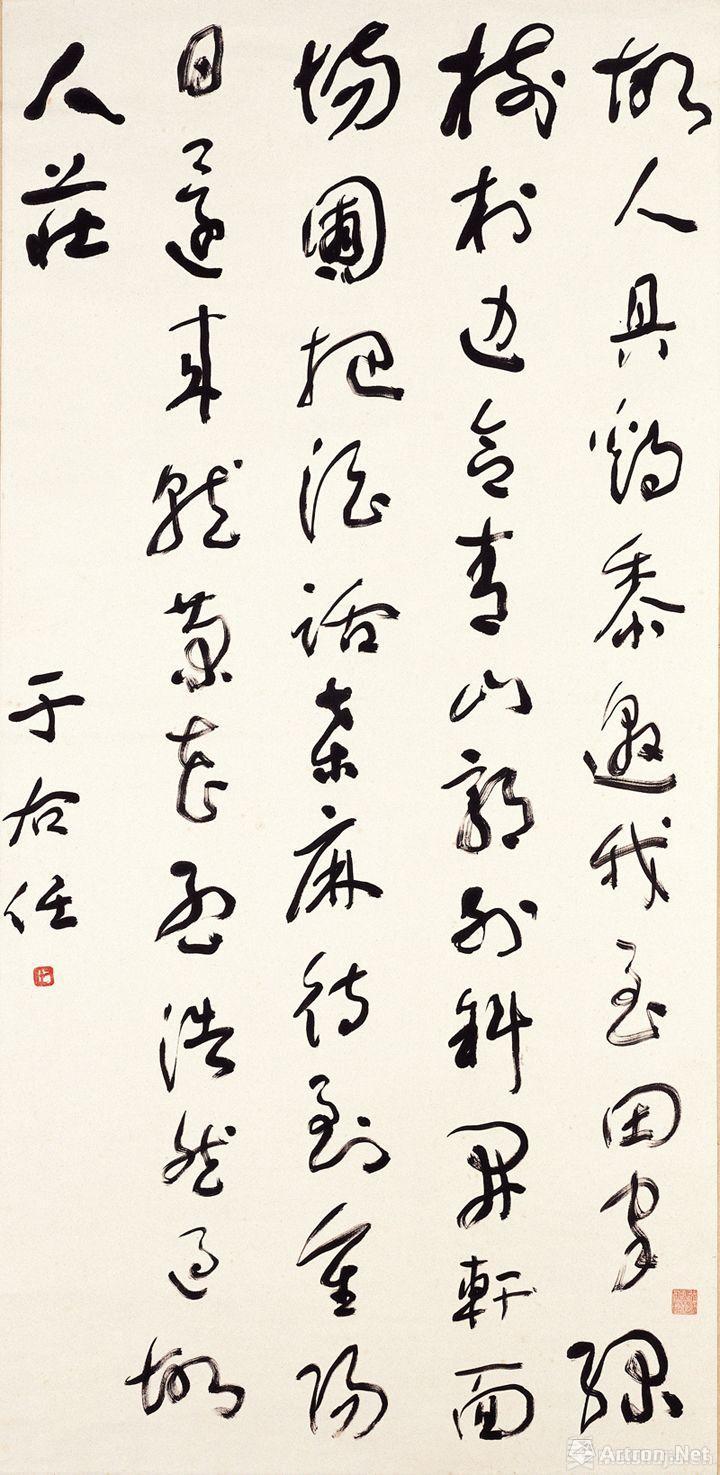 故人具鷄黍邀我至田家綠
樹村邊合青山郭外斜開軒面
場圃把酒話桑麻待到重陽
日還來就菊花孟浩然過故
人莊
于右任
Artron.Net